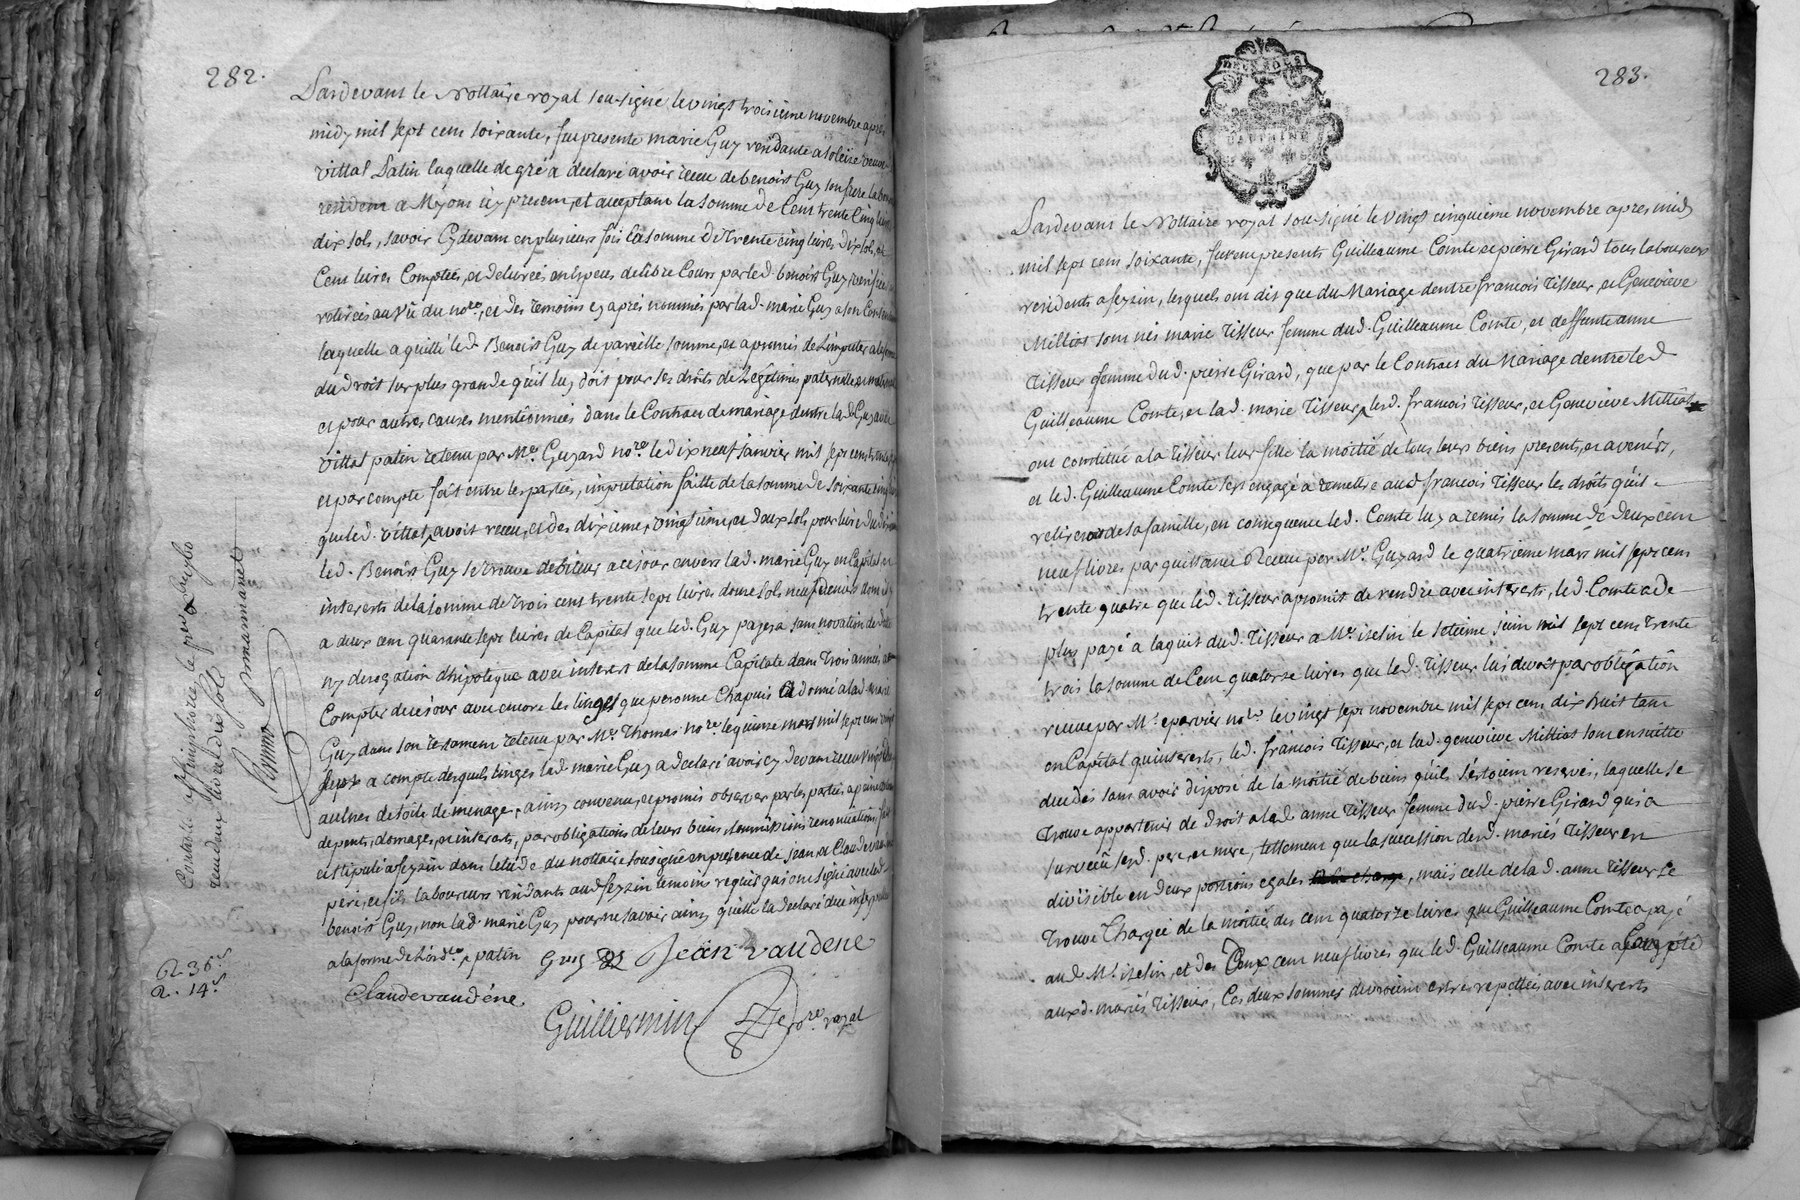 282.
Pardevant le Nottaire royal sousigné le vingt troisieme novembre apres
midy mil sept cent soixante, fut presente marie Guy residante a soleize veuve
vittal Patin laquelle de gré a declaré avoir receu de benoist Guy son frere
residant a Myons icy present, et acceptant la somme de Cent trente Cinq livres
dix sols, savoir Cydevant en plusieurs fois la somme de trente cinq livres dix sols, et
Cent livres Comptées, et delivrées en Especes de libre Cours par led. benoist Guy,
retirées au vû du nore, et des temoins cy apres nommés par lad. marie Guy a son Contentement
laquelle a quitté led. Benoist Guy de pareille somme, et a promis de l'imputer a
du Droit surplus grande qu'il luy doit pour ses droits de Legitimes paternelle et maternelle
et pour autres causes mentionnées dans le Contract de mariage d'entre lad. Guy avec
vittal patin retenu par Me. Guyard nore. le dix neuf janvier mil sept cent
et par compte fait entre les parties, imputation faitte de la somme de soixante cinq
que led. vittal avoit receu, et des dixieme, vingtieme, et deux sols pour livre du dixieme
led. Benoist Guy se trouve debiteur a ce jour envers lad. marie Guy en Capital et
interests de la somme de trois cent trente sept livres douze sols neuf deniers dont
a deux cent quarante sept livres de Capital que led. Guy payera sans novation de
ny derogation d'hipoteque avec interest de la somme Capitale dans trois années a
Compter de ce jour avec encore les linges que peronne Chapuis a donné a lad. marie
Guy dans son testament retenu par Me. Thomas nore. le quinze mars mil sept cent vingt
sept a compte desquels linges lad. marie Guy a declaré avoir cy devant receu
aulnes de toile de menage; ainsy convenu, et promis observer par les parties a peine
depents, domages, et interests, par obligations de leurs biens, soumissions renonciations, fait
et stipulé a seyzin dans l'etude du nottaire sousigné en presence de jean et Claude vaudene
pere, et fils laboureurs residants aud. seyzin temoins requis qui ont signé avec led.
benoist Guy, non lad. marie Guy pour ne savoir ainsy qu'elle la declaré due interpellée
a la forme de l'ordce, patin Guy Jean vaudene
Claude vaudéne
Guilliermin nore royal
R. 36.s
R. 14.s
283.
DEUX SOLS
DAUPHINE
Pardevant le Nottaire royal sousigné le vingt cinquieme novembre apres midy
mil sept cent soixante, furent presents Guilleaume Comte et pierre Girard tous laboureurs
residents a seyzin, lesquels ont dit que du Mariage dentre francois Tisseur, et Genevieve
Milliot sont nés marie Tisseur femme dud. Guilleaume Comte, et deffunte anne
Tisseur femme dud. pierre Girard, que par le Contract du Mariage dentre led.
Guilleaume Comte, et lad. marie Tisseur, lesd. francois Tisseur, et Genevieve Milliot
ont constitué a la Tisseur leur fille la moitié de tous leurs biens presents, et avenirs,
et led. Guilleaume Comte s'est engagé a remettre aud. francois Tisseur les droits qu'il
retireroit de sa famille, en consequence led. Comte luy a remis la somme de deux cent
neuf livres par quittance Receue par Me. Guyard le quatrieme mars mil sept cent
trente quatre que led. Tisseur a promis de rendre avec interests, led. Comte a de
plus payé a laquit dud. Tisseur a Me. iselin le setieme juin mil sept cent trente
trois la somme de Cent quatorze livres que led. Tisseur lui devoit par obligation
receue par Me. eparvier nore. le vingt sept novembre mil sept cent dix huit tant
en Capital qu'interests, led. francois Tisseur, et lad. genevieve Milliot sont ensuitte
decedés sans avoir disposé de la moitié de biens qu'ils s'estoient reservés, laquelle se
trouve appartenir de droit a lad. anne Tisseur femme dud. pierre Girard qui a
survécû sesd. pere, et mere, tellement que la succession desd. mariés Tisseur en
divisible en deux portions egales, mais celle de lad. anne Tisseur se
trouve Chargée de la moitié des cent quatorze livres que Guilleaume Comte a payé
aud. Me. iselin, et des Deux cent neuf livres que led. Guilleaume Comte a Compté
auxd. mariés Tisseur, Ces deux sommes devroient estre repettées avec interests